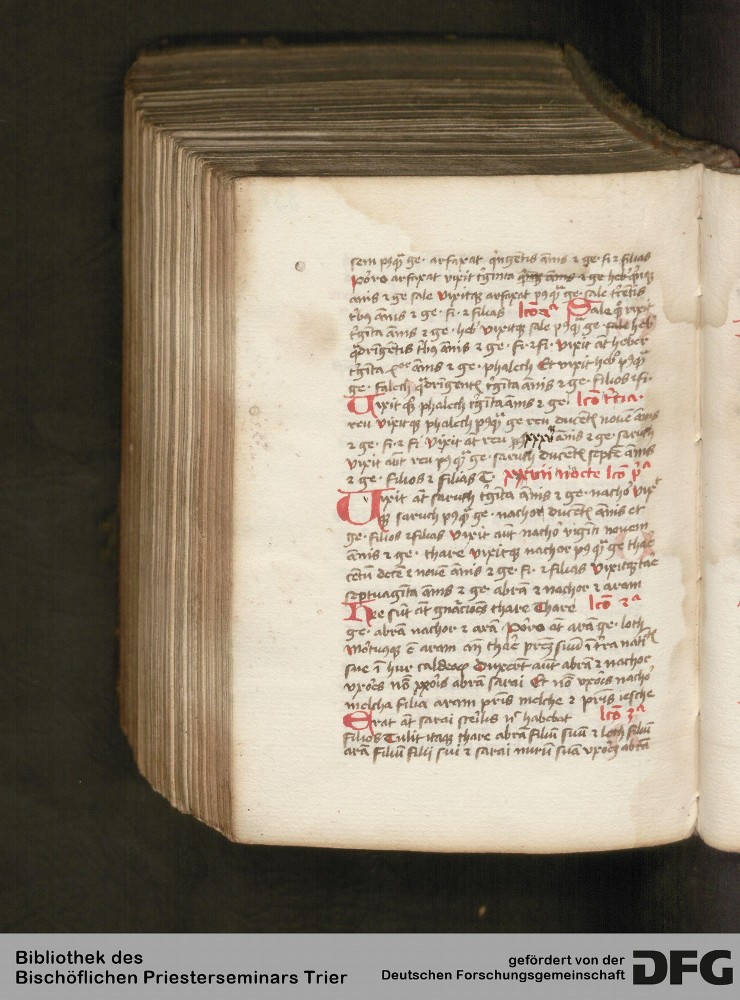 sem p9qᷓ ge· arfaxat q̇ngētis ānis ⁊ ge· fi ⁊ filias
Porro arfaxat vixit tͥginta ānis ⁊ ge heb
ānis ⁊ ge sale vixitqꝫ arfaxat p9qᷓ ge· sale tͤcētis
tͥb9 ānis ⁊ ge· fi· ⁊ filias lcō 2ᵃ Sale qͦ vixit
tͥgīta ānis ⁊ ge· heb vixitqꝫ sale p9qᷓ ge· sale heb
qᷓdringētis tͥb9 ānis ⁊ ge· fi· ⁊ fi· vixit at heber
tͥgīta ānis ⁊ ge· phalech Et vixit heb p9qᷓ
ge· falech qᷓdringent tͥgīta ānis ⁊ ge· filios ⁊ fi·
Vixit phalech tͥgīta ānis ⁊ ge· lcō tͥcia·
reu vixitqꝫ phalech p9qᷓ ge reu ducēt novē ānis
⁊ ge· fi· ⁊ fi· vixit at reu xxxv ānis ⁊ ge· saruch
vixit aūt reu p9qᷓ ge· saruch ducēt septē ānis
⁊ ge· filios ⁊ filias xxvii nocte lcō pᵃ
Vixit at saruch tͥgīta ānis ⁊ ge· nachor vixͭ
qꝫ saruch p9qᷓ ge· nachor ducēt ānis et
ge· filios ⁊ filias vixit aūt nachor viginti novem
ānis ⁊ ge· thare vixitqꝫ nachor p9qᷓ ge thare
cētū decē ⁊ novē ānis ⁊ ge· fi· ⁊ filias vixitqꝫ tare
septuagīta ānis ⁊ ge· abrā ⁊ nachor ⁊ aram
Hee sūt at gnācōes thare Thare lcō 2ᵃ
ge· abrā nachor ⁊ arā Porro at arā ge· loth
mortuusqꝫ ē aram an thare prem suū ī tr̄a natͭ
sue ī hur caldeoꝝ Duxerūt aūt abrā ⁊ nachor
vxores nō vxoris abrā sarai Et nō vxoris nachor
melcha filia aram pris melche ⁊ pris iesche
Erat at sarai steilis n̄ habebat lcō 3ᵃ
filios Tulit itaqꝫ thare abrā filiū suū ⁊ loth filiū
arā filiū filii sui ⁊ sarai nurū suā vxorē abrā
Bibliothek des
Bischöflichen Priesterseminars Trier
gefördert von der
Deutschen Forschungsgemeinschaft
DFG